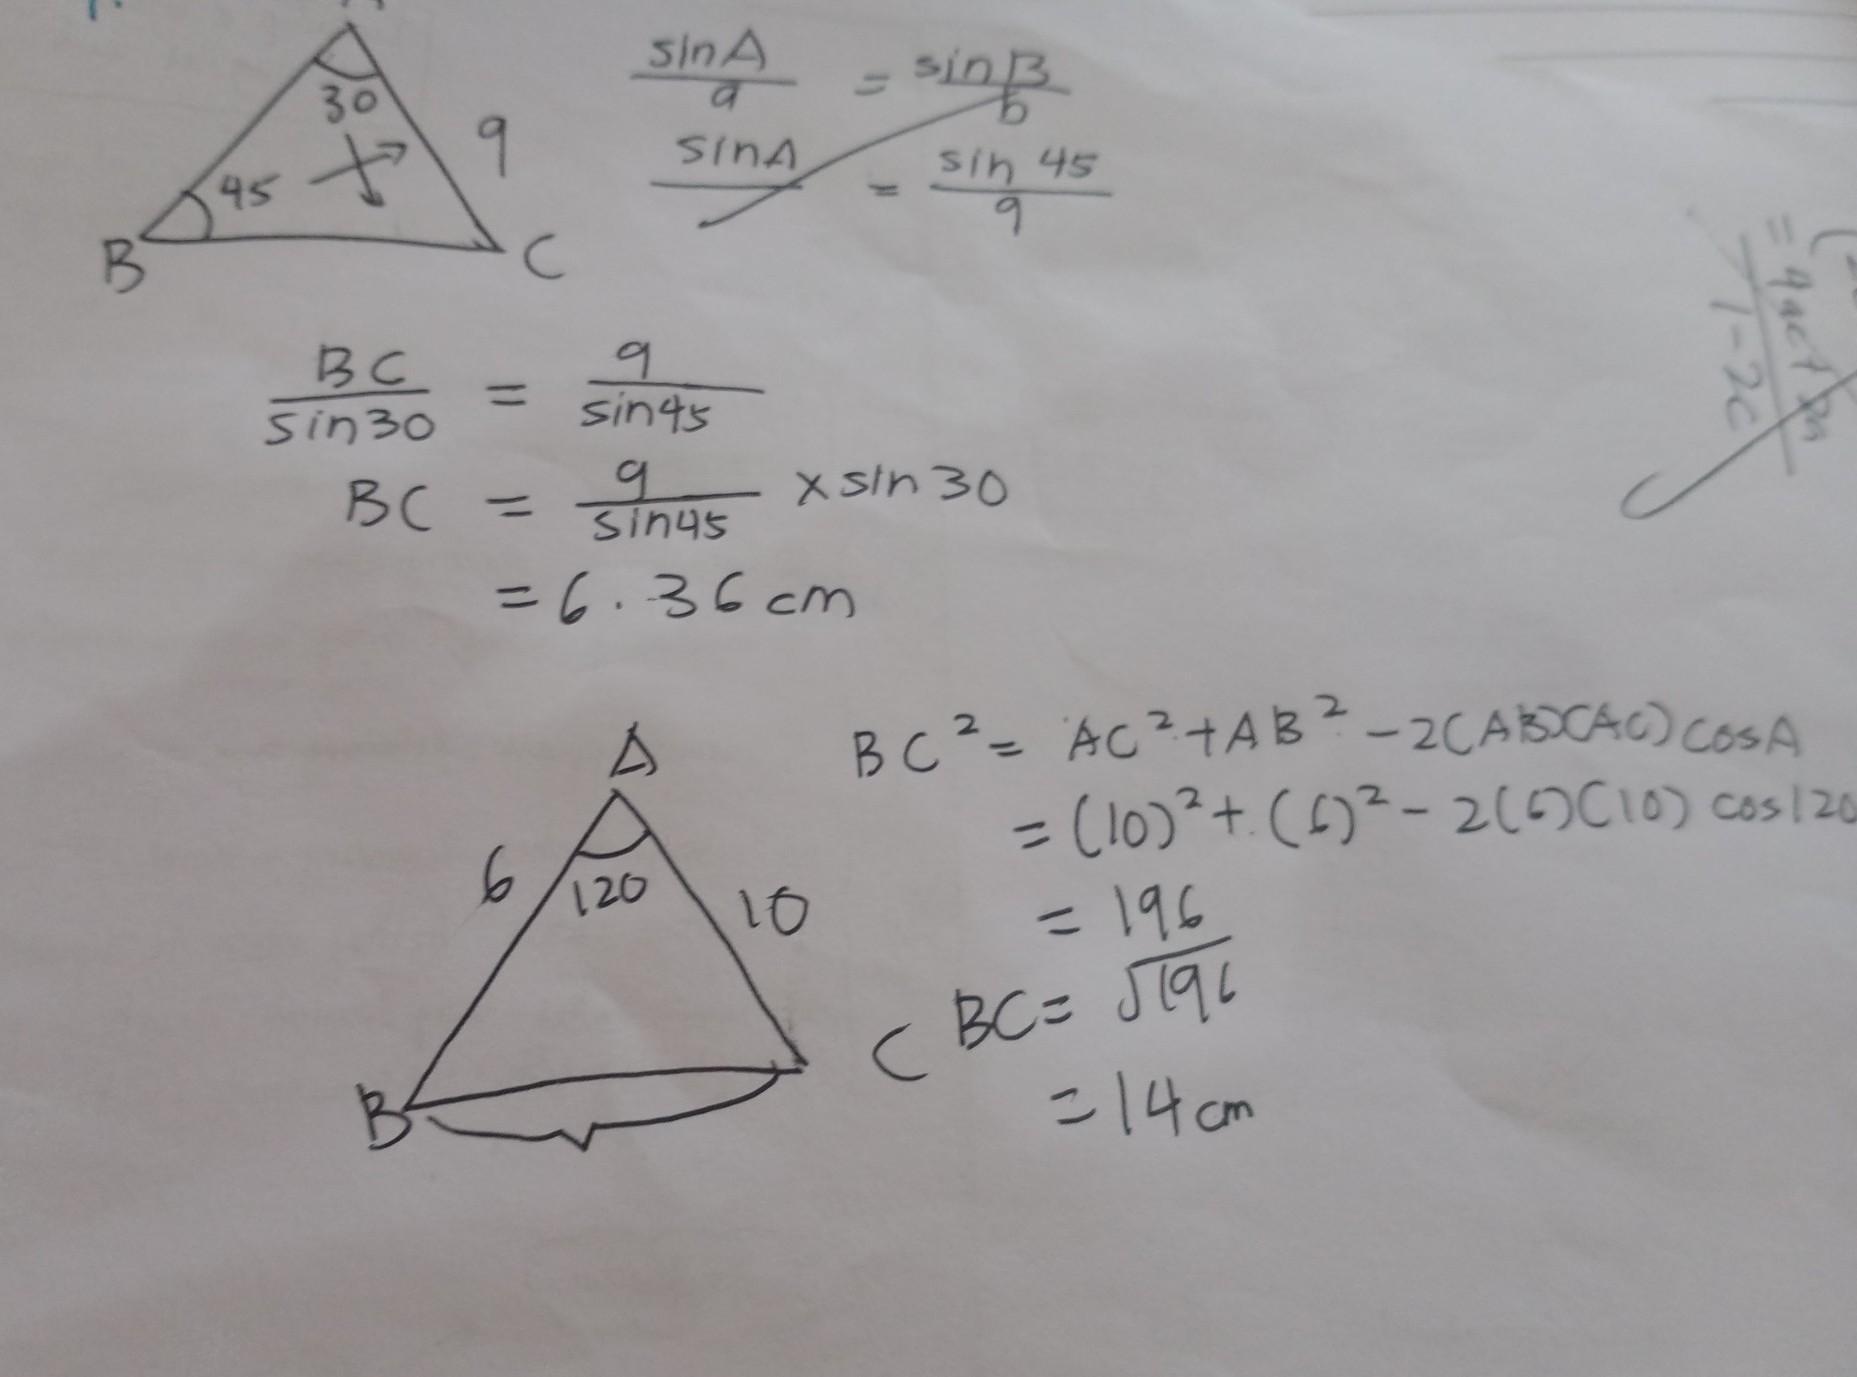 30
45
9
B
C
sinA/a = sinB/b
sinA/ = sin 45/9
BC/sin30 = 9/sin45
BC = 9/sin45 × sin 30
= 6.36 cm
A
6
120
10
B
C
BC² = AC² + AB² - 2(AB)(AC) cosA
= (10)² + (6)² - 2(6)(10) cos120
= 196
BC = √196
= 14 cm
1-2c